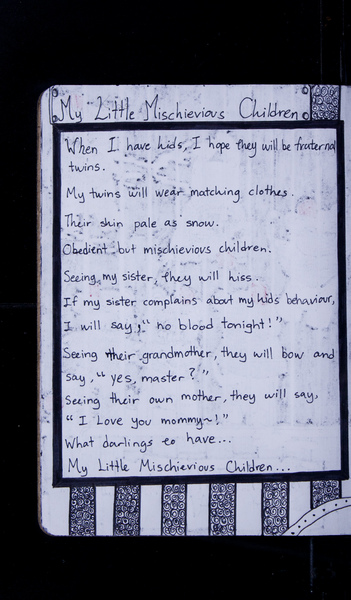 My Little Mischievious Children
When I have kids, I hope they will be fraternal
twins.
My twins will wear matching clothes.
Their skin pale as snow.
Obedient but mischievious children.
Seeing my sister, they will hiss.
If my sister complains about my kids behaviour,
I will say, "no blood tonight!"
Seeing their grandmother, they will bow and
say, "yes, master?"
Seeing their own mother, they will say,
"I Love you mommy~!"
What darlings to have...
My Little Mischievious Children...